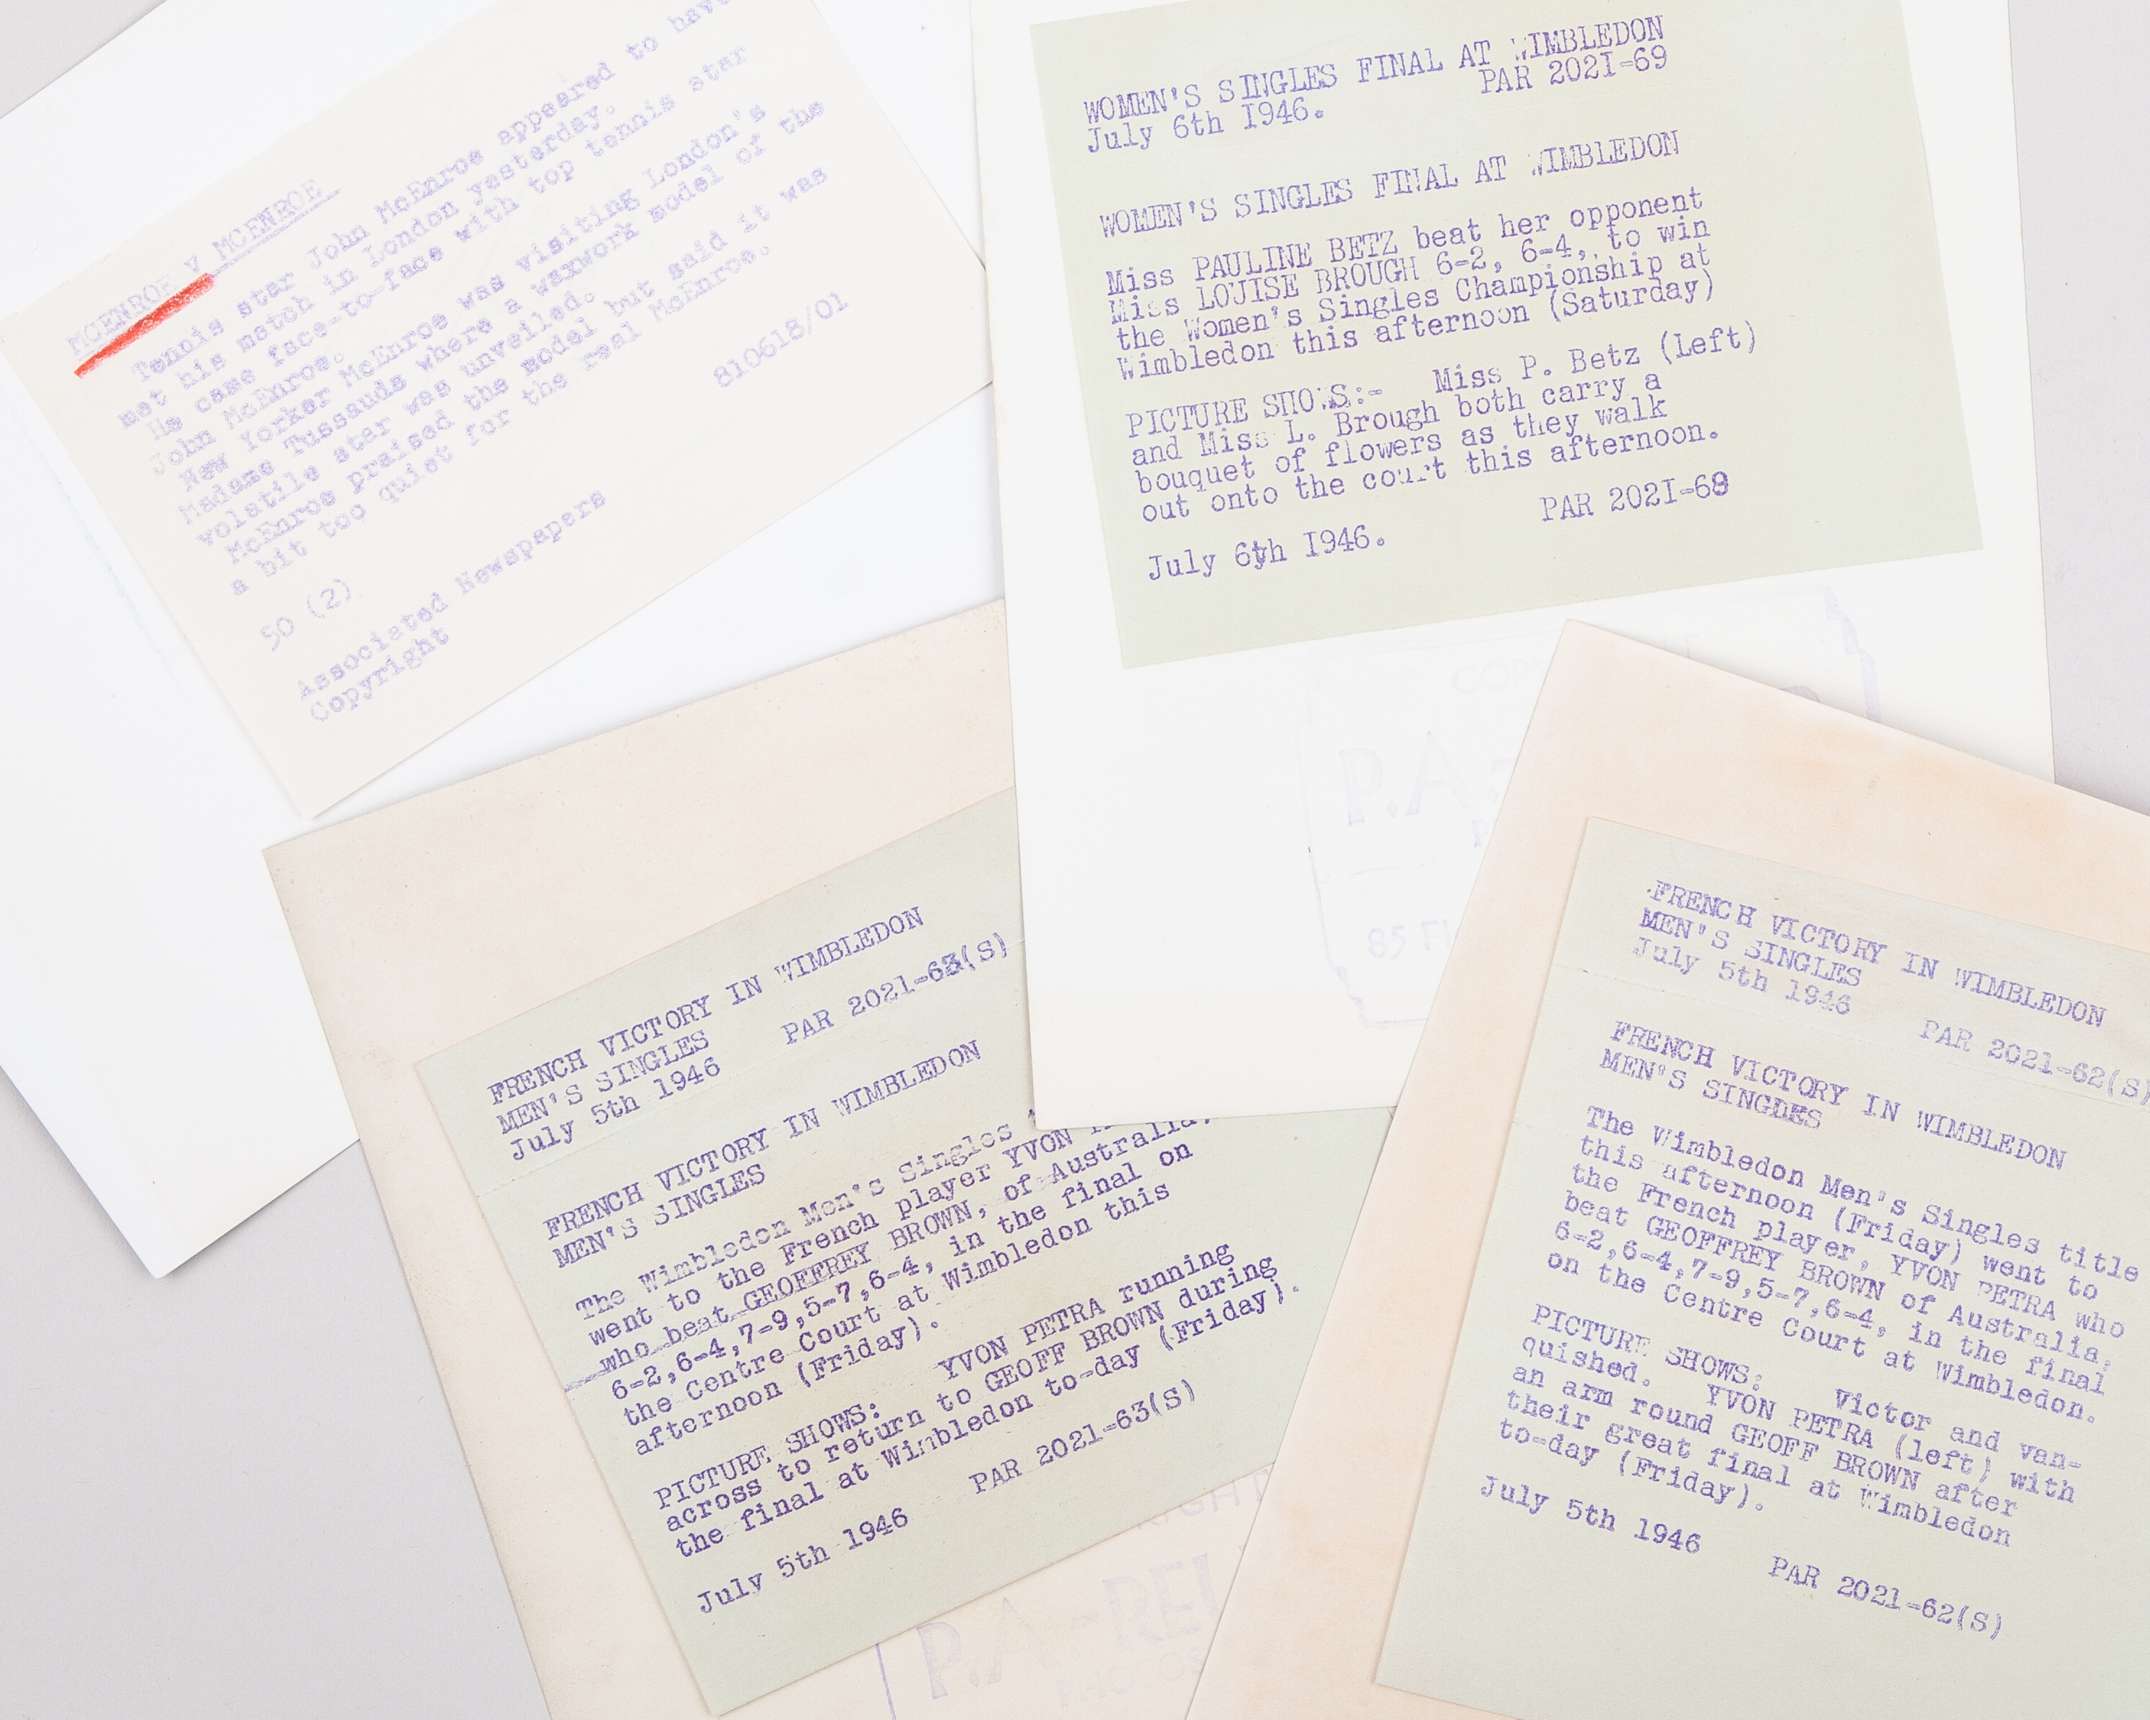 MCENROE V MCENROE
Tennis star John McEnroe appeared to have
met his match in London yesterday.
He came face-to-face with top tennis star
John McEnroe.
New Yorker McEnroe was visiting London's
Madame Tussauds where a waxwork model of the
volatile star was unveiled.
McEnroe praised the model but said it was
a bit too quiet for the real McEnroe.
810618/01
50 (2)
Associated Newspapers
Copyright
WOMEN'S SINGLES FINAL AT WIMBLEDON
July 6th I946. PAR 202I-69
WOMEN'S SINGLES FINAL AT WIMBLEDON
Miss PAULINE BETZ beat her opponent
Miss LOUISE BROUGH 6-2, 6-4, to win
the Women's Singles Championship at
Wimbledon this afternoon (Saturday)
PICTURE SHOWS:- Miss P. Betz (Left)
and Miss L. Brough both carry a
bouquet of flowers as they walk
out onto the court this afternoon.
July 6th I946. PAR 202I-69
P.A
85 FL
FRENCH VICTORY IN WIMBLEDON
MEN'S SINGLES
July 5th 1946 PAR 2021-63(S)
FRENCH VICTORY IN WIMBLEDON
MEN'S SINGLES
The Wimbledon Men's Singles
went to the French player YVON
who beat GEOFFREY BROWN, of Australia,
6-2,6-4,7-9,5-7,6-4, in the final on
the Centre Court at Wimbledon this
afternoon (Friday).
PICTURE SHOWS: YVON PETRA running
across to return to GEOFF BROWN during
the final at Wimbledon to-day (Friday).
July 5th 1946 PAR 2021-63(S)
P.A-REU
PHOTOS
FRENCH VICTORY IN WIMBLEDON
MEN'S SINGLES
July 5th 1946 PAR 2021-62(S)
FRENCH VICTORY IN WIMBLEDON
MEN'S SINGLES
The Wimbledon Men's Singles title
this afternoon (Friday) went to
the French player, YVON PETRA who
beat GEOFFREY BROWN of Australia,
6-2,6-4,7-9,5-7,6-4, in the final
on the Centre Court at Wimbledon.
PICTURE SHOWS: Victor and van-
quished. YVON PETRA (left) with
an arm round GEOFF BROWN after
their great final at Wimbledon
to-day (Friday).
July 5th 1946 PAR 2021-62(S)